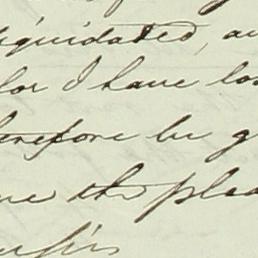 liquidated, a
for I have lo
therefore be g
me the plea